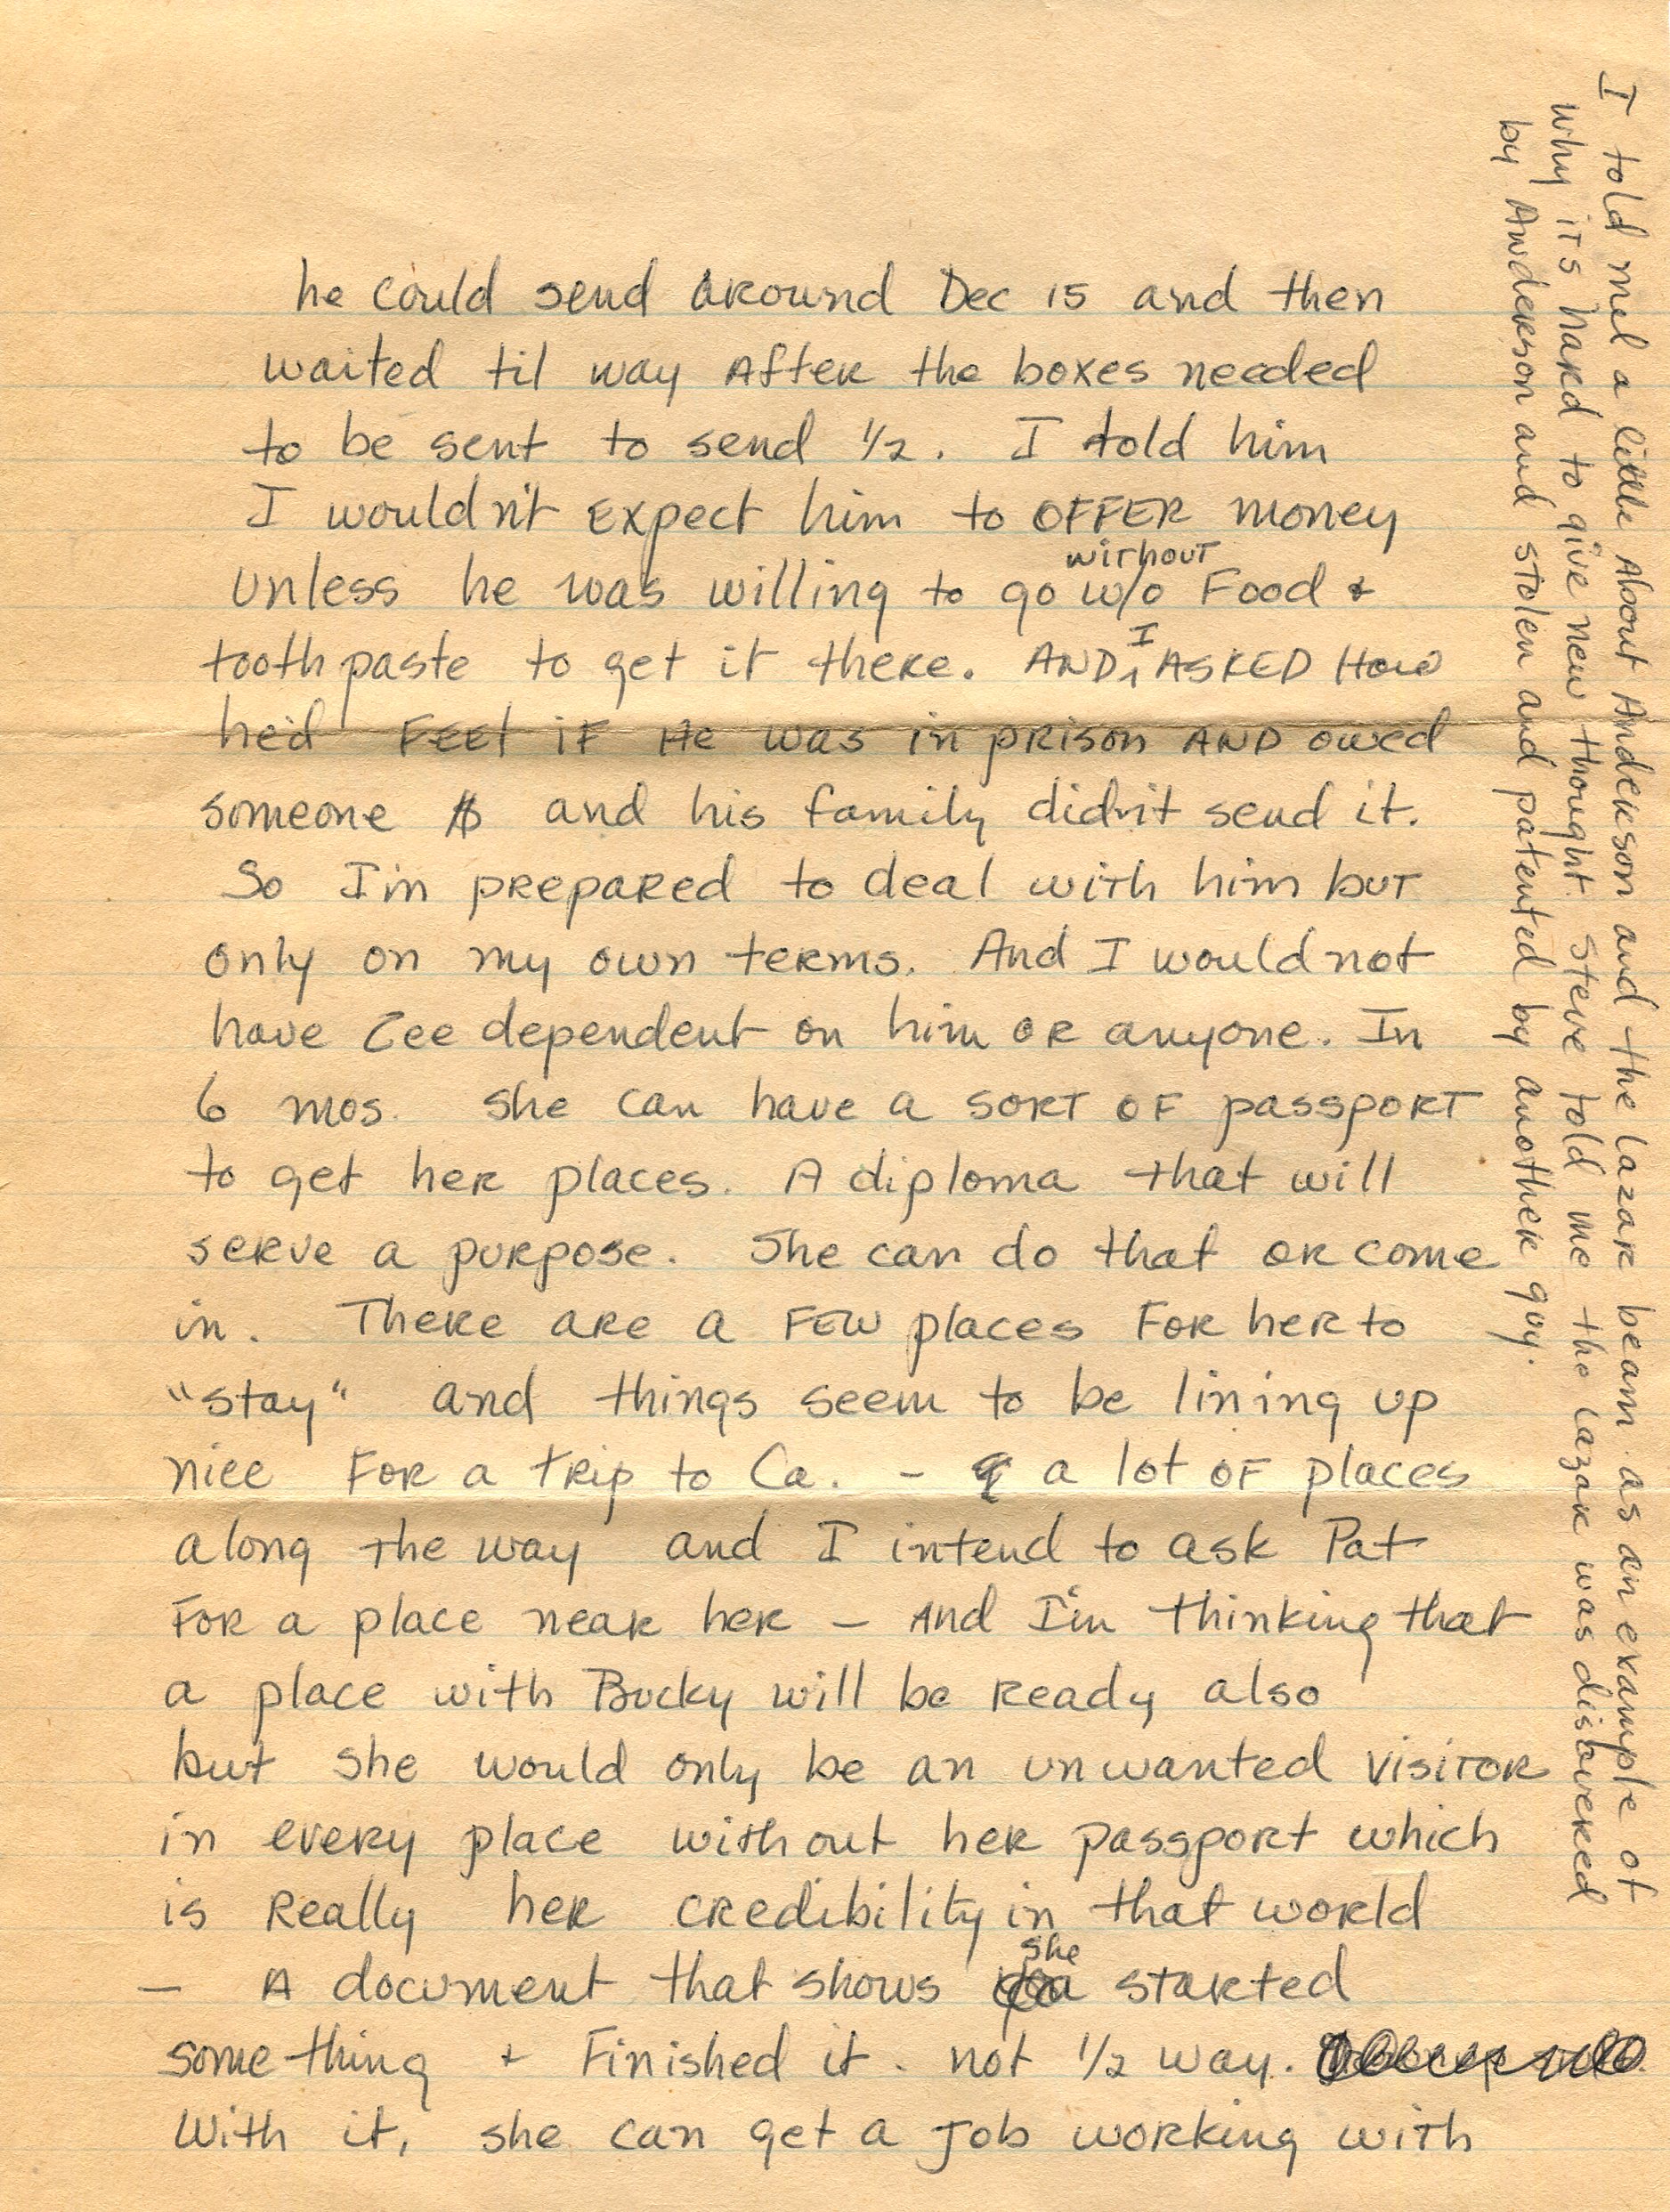 he could send around Dec 15 and then
waited til way After the boxes needed
to be sent to send 1/2. I told him
I wouldn't expect him to OFFER money
without
unless he was willing to go w/o Food +
I
toothpaste to get it there. AND ASKED How
he'd FEEL iF He was in prison AND owed
someone $ and his family didn't send it.
So I'm prepared to deal with him but
only on my own terms. And I would not
have Zee dependent on him or anyone. In
6 mos. she can have a sort of passport
to get her places. A diploma that will
serve a purpose. She can do that or come
in. There are a FEW places For her to
"stay" and things seem to be lining up
nice For a trip to Ca. - a lot of places
along the way and I intend to ask Pat
For a place near her - And I'm thinking that
a place with Bucky will be ready also
but she would only be an unwanted visitor
in every place without her passport which
is Really her credibility in that world
she
- A document that shows started
something + Finished it. not 1/2 way.
With it, she can get a job working with
I told mel a little About Anderson and the lazar beam as an example of
why it's hard to give new thought. Steve told me the lazar was disovered
by Anderson and stolen and patented by another guy.